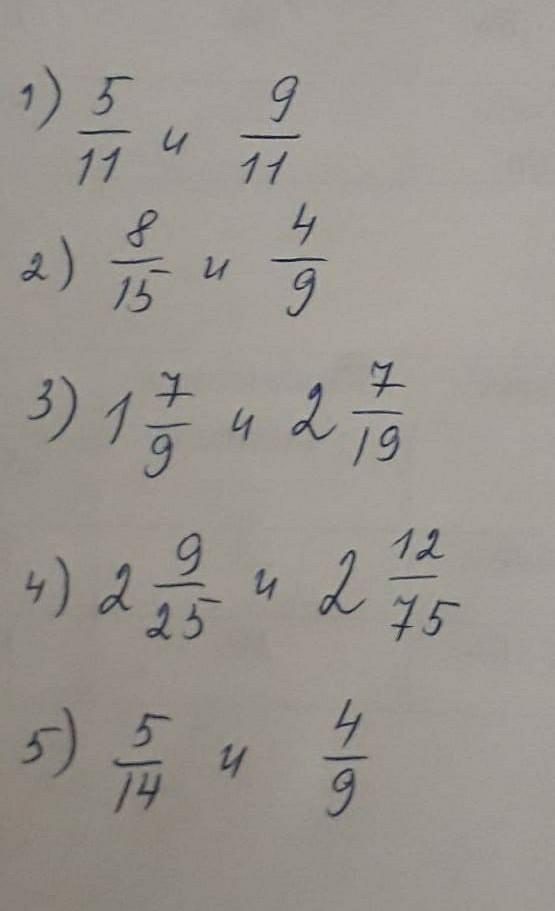 1) 5/11 и 9/11
2) 8/15 и 4/9
3) 1 7/9 и 2 7/19
4) 2 9/25 и 2 12/75
5) 5/14 и 4/9